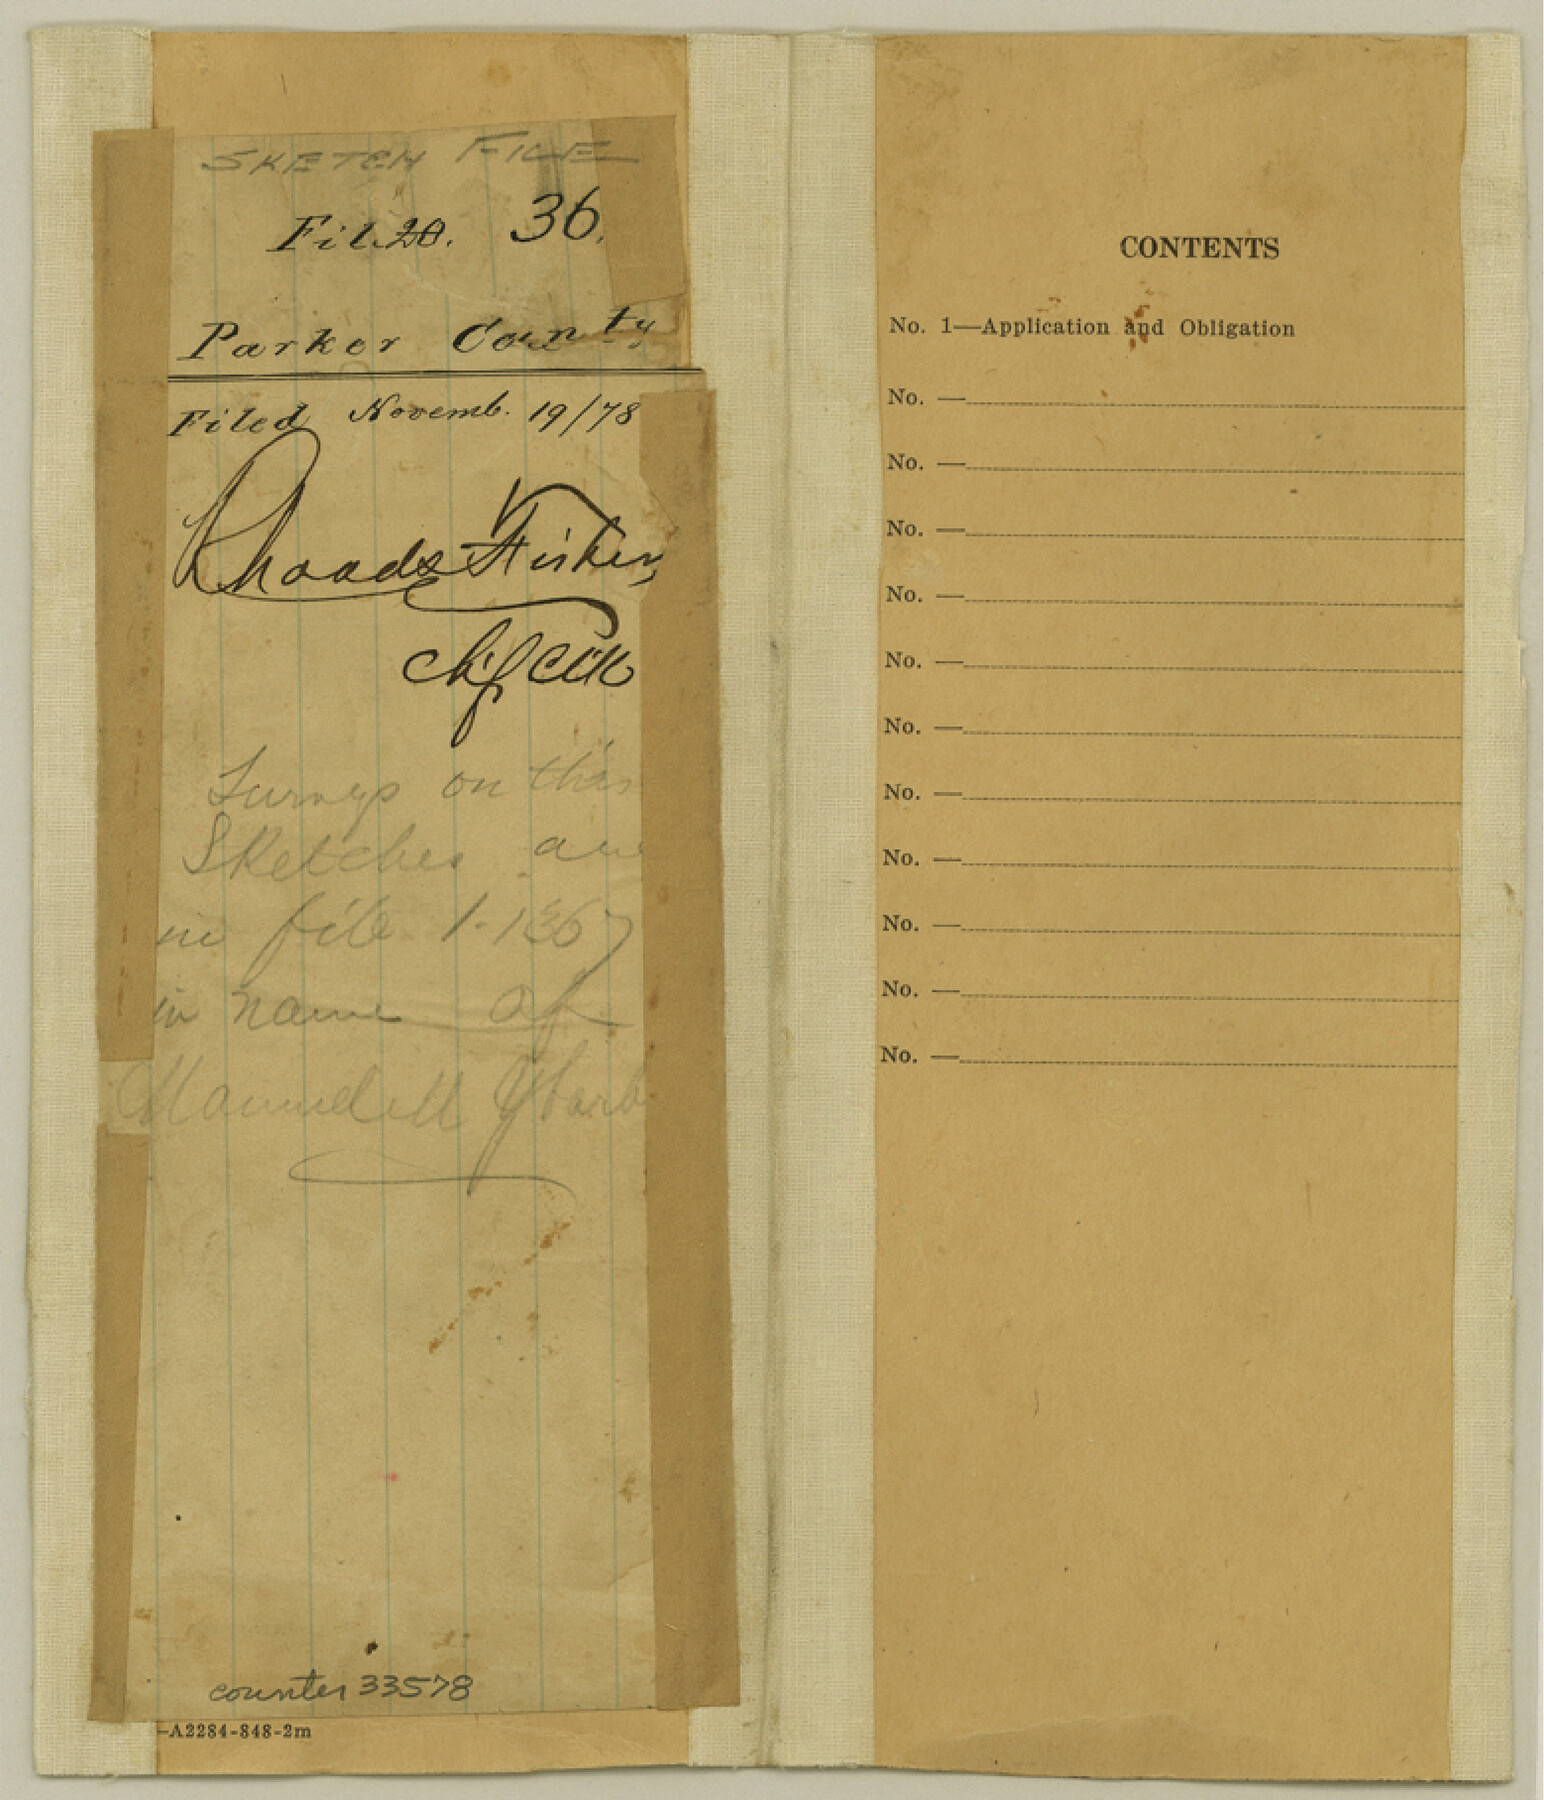 SKETCH FILE
File 20. 36.
Parker County
Filed Novemb. 19/78
Rhoads Fisher,
Chf Clk
Surveys on this
Sketches are
in file 1-1367
in name of
Ybarb
counter 33578
-A2284-848-2m
CONTENTS
No. 1—Application and Obligation
No. —
No. —
No. —
No. —
No. —
No. —
No. —
No. —
No. —
No. —
No. —